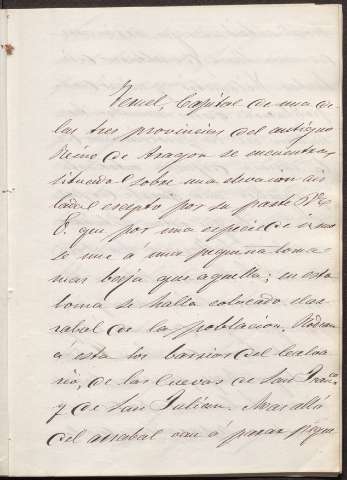 Teruel, Capital de una de
las tres provincias del antiguo
Reino de Aragon se encuentra
situada sobre una elevacion ais
lada escepto por su parte
E. que por una especie de istmo
se une á una pequeña loma
mas baja que aquella; en esta
loma se halla colocado el ar
rabal de la poblacion. Rodean
á esta los barrios del Calva
rio, de las Cuevas de San Fran.co
y de San Julian. Mas allá
del arrabal van á parar peque